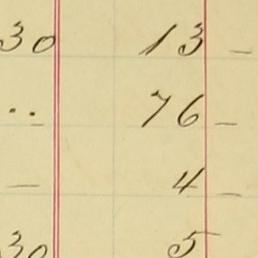 30 13 –
.. 76 –
– 4 –
30 5